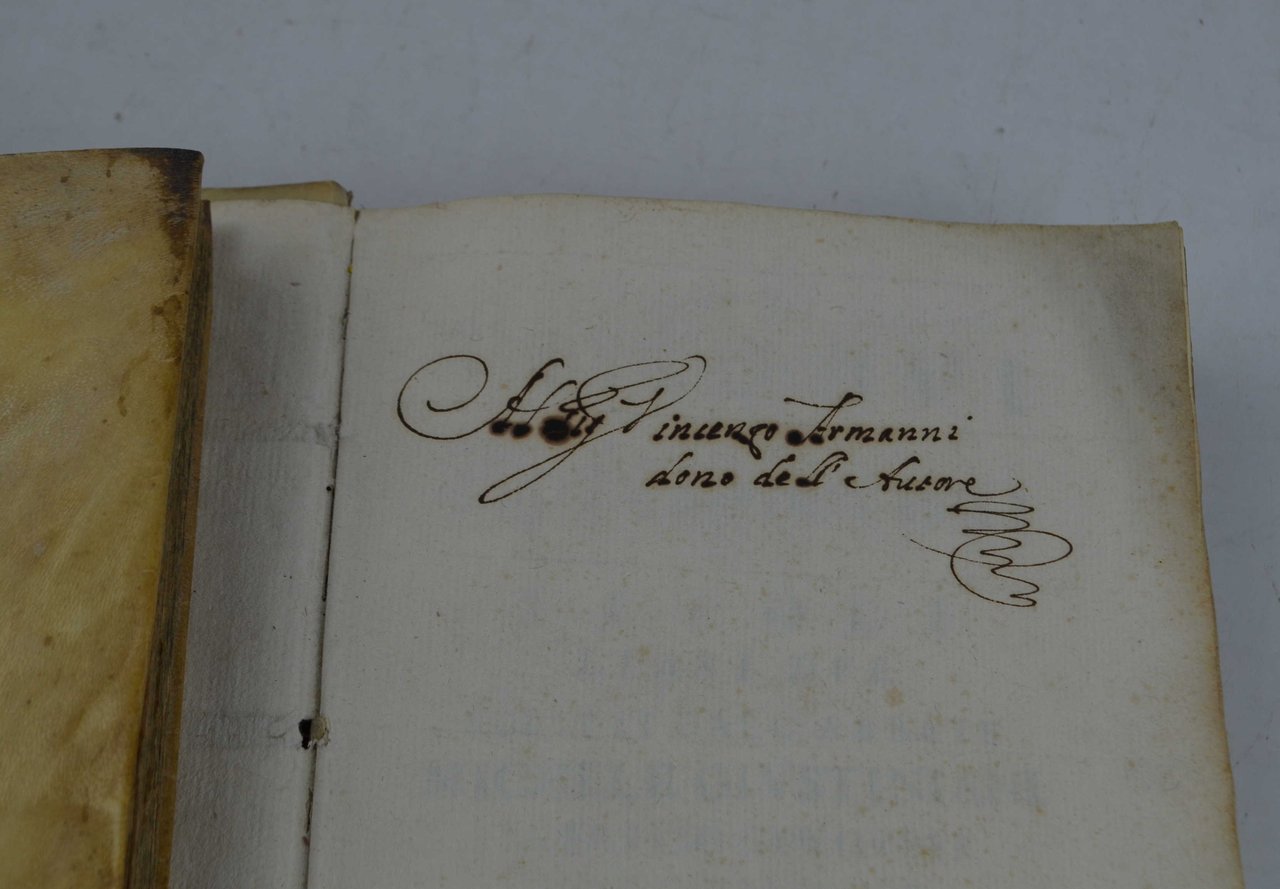 Al Sig Vincenzo Armanni
dono dell' Autore